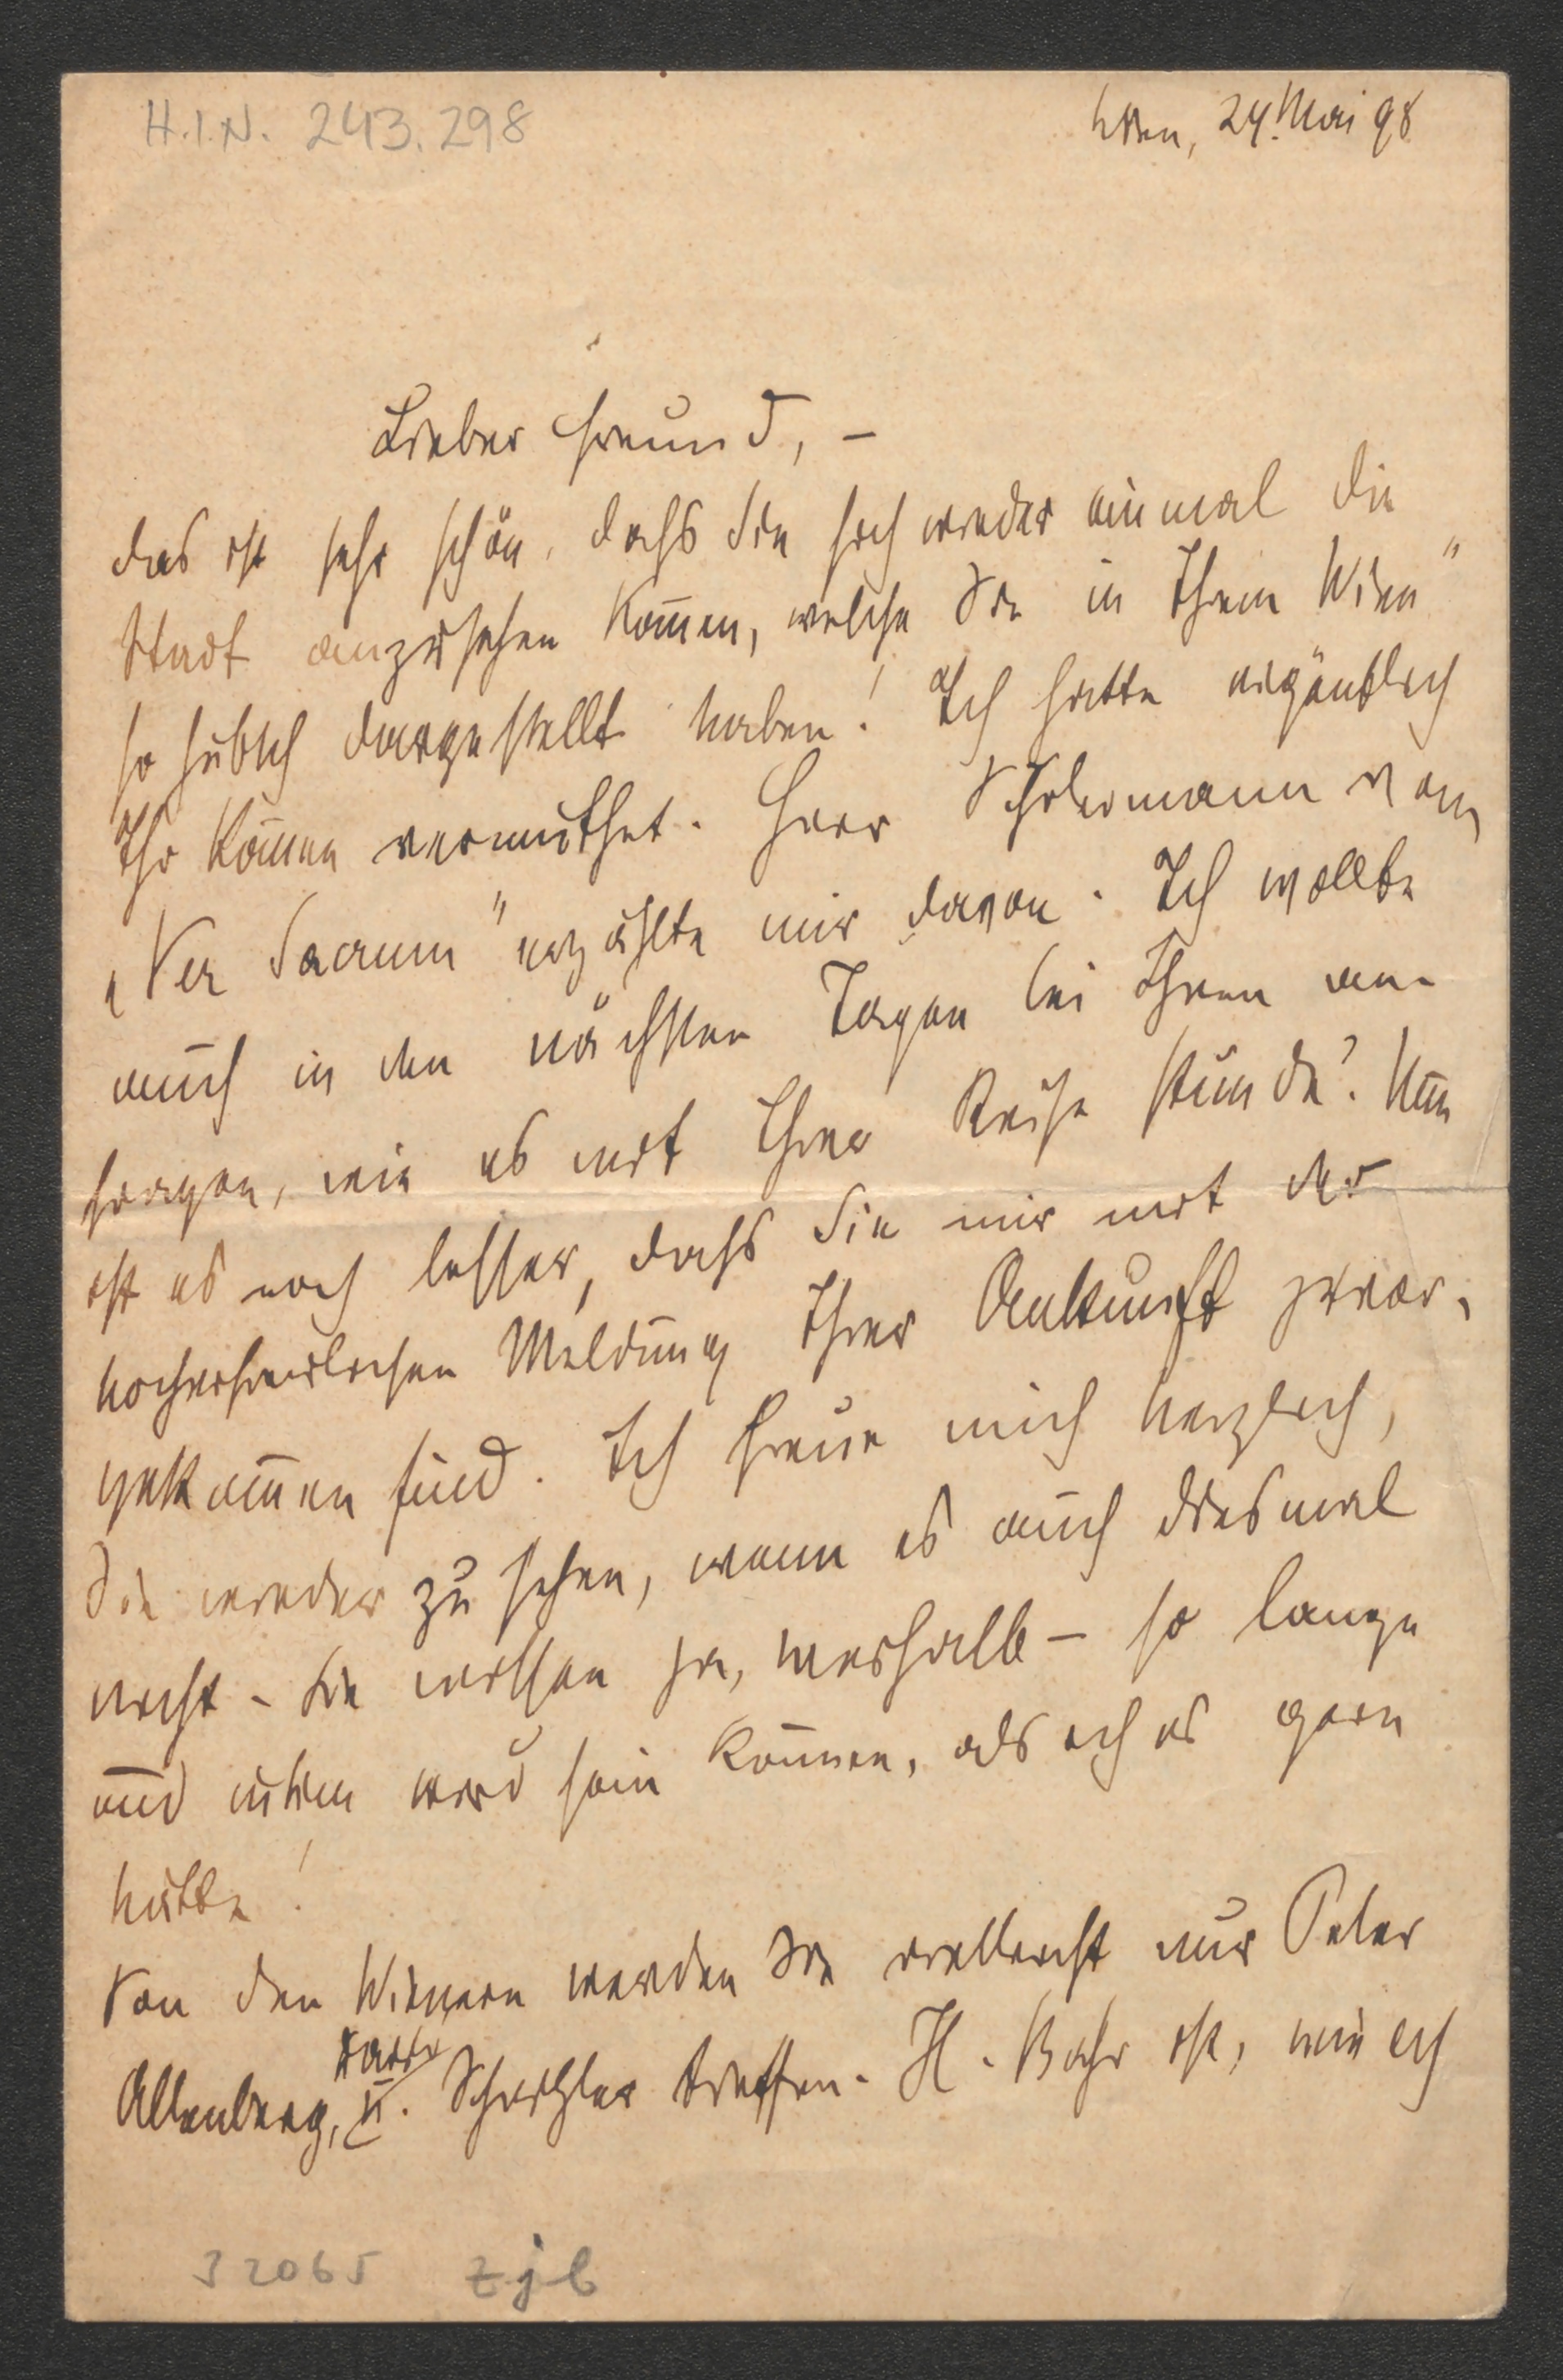 H.I.N. 243.298
Wien, 24. Mai 98
Lieber Freund, –
das ist sehr schön, dass Sie sich wieder einmal die
Stadt anzusehen kom̅en, welche Sie in Ihrem Wien"
so hübsch dargestellt haben! Ich hatte eigentlich
Ihr Kom̅en vermuthet. Herr Schölermann vom
„Ver Sacrum" erzählte mir davon. Ich wollte
auch in den nächsten Tagen bei Ihnen an-
fragen, wie es mit Ihrer Reise stünde? Nun
ist es noch besser, dass Sie mir mit der
hocherfreulichen Meldung Ihrer Ankunft zuvor-
gekom̅en sind. Ich freue mich herzlich,
Sie wieder zu sehen, wenn es auch diesmal
nicht – Sie wissen ja, weshalb – so lange
und intim wird sein können, als ich es gern
hätte!
Von den Wienern werden Sie vielleicht nur Peter
Altenberg, u. Schnitzler treffen. H. Bahr ist, wie ich
32065 zjb